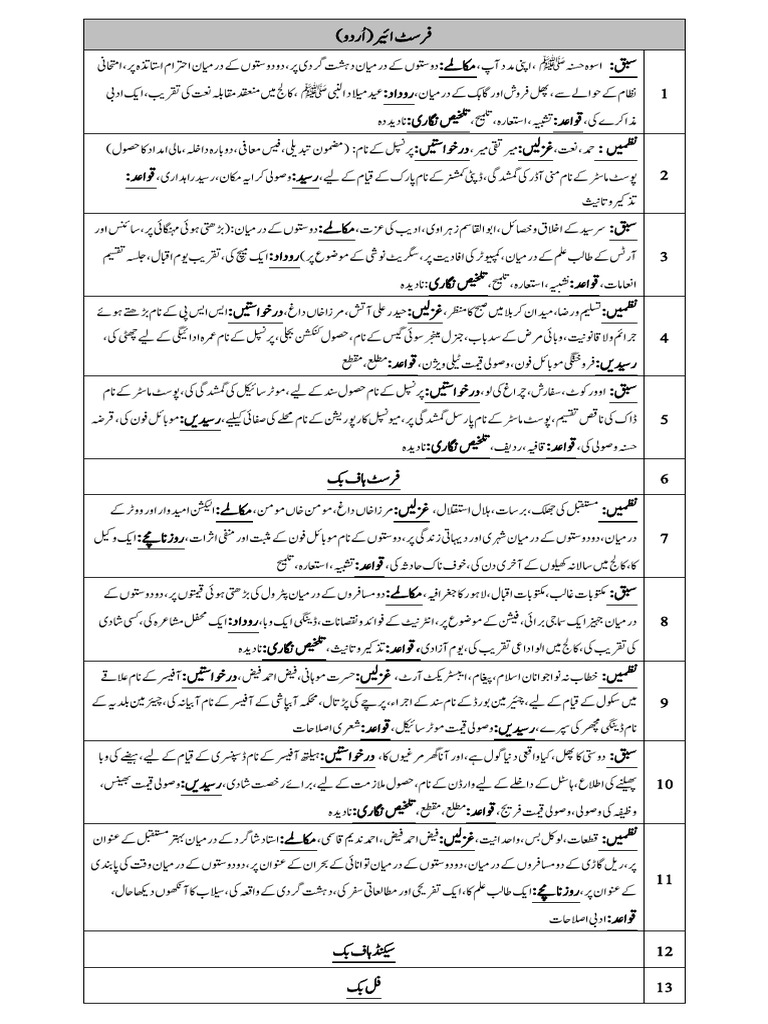 فرسٹ ائیر (اُردو)
1
سبق: اسوہ حسنہ ﷺ، اپنی مدد آپ، مکالمے: دوستوں کے درمیان دہشت گردی پر، دو دوستوں کے درمیان احترام اساتذہ پر، امتحانی
نظام کے حوالے سے، پھل فروش اور گاہک کے درمیان، روداد: عید میلاد النبی ﷺ، کالج میں منعقد مقابلہ نعت کی تقریب، ایک ادبی
مذاکرے کی، قواعد: تشبیہ، استعارہ، تلمیح، تلخیص نگاری: نادیدہ
2
نظمیں: حمد، نعت، غزلیں: میر تقی میر، درخواستیں: پرنسپل کے نام: (مضمون تبدیلی، فیس معافی، دوبارہ داخلہ، مالی امداد کا حصول)
پوسٹ ماسٹر کے نام منی آڈر کی گمشدگی، ڈپٹی کمشنر کے نام پارک کے قیام کے لیے، رسید: وصولی کرایہ مکان، رسید راہداری، قواعد:
تذکیر و تانیث
3
سبق: سرسید کے اخلاق و خصائل، ابوالقاسم زہراوی، ادیب کی عزت، مکالمے: دوستوں کے درمیان: (بڑھتی ہوئی مہنگائی پر، سائنس اور
آرٹس کے طالب علم کے درمیان، کمپیوٹر کی افادیت پر، سگریٹ نوشی کے موضوع پر) روداد: ایک میچ کی، تقریب یوم اقبال، جلسہ تقسیم
انعامات، قواعد: تشبیہ، استعارہ، تلمیح، تلخیص نگاری: نادیدہ
4
نظمیں: تسلیم و رضا، میدان کربلا میں صبح کا منظر، غزلیں: حیدر علی آتش، مرزا خاں داغ، درخواستیں: ایس ایس پی کے نام بڑھتے ہوئے
جرائم ولا قانونیت، وبائی مرض کے سدباب، جنرل مینیجر سوئی گیس کے نام، حصول کنکشن بجلی، پرنسپل کے نام عمرہ ادائیگی کے لیے چھٹی کی،
رسیدیں: فروختگی موبائل فون، وصولی قیمت ٹیلی ویژن، قواعد: مطلع، مقطع
5
سبق: اوور کوٹ، سفارش، چراغ کی لو، درخواستیں: پرنسپل کے نام حصول سند کے لیے، موٹر سائیکل کی گمشدگی کی، پوسٹ ماسٹر کے نام
ڈاک کی ناقص تقسیم، پوسٹ ماسٹر کے نام پارسل گمشدگی پر، میونسپل کارپوریشن کے نام محلے کی صفائی کیلیے، رسیدیں: موبائل فون کی، قرضہ
حسنہ وصولی کی، قواعد: قافیہ، ردیف، تلخیص نگاری: نادیدہ
6
فرسٹ ہاف بک
7
نظمیں: مستقبل کی جھلک، برسات، ہلال استقلال، غزلیں: مرزا خاں داغ، مومن خاں مومن، مکالمے: الیکشن امیدوار اور ووٹر کے
درمیان، دو دوستوں کے درمیان شہری اور دیہاتی زندگی پر، دوستوں کے نام موبائل فون کے مثبت اور منفی اثرات، روزنامچے: ایک وکیل
کا، کالج میں سالانہ کھیلوں کے آخری دن کی، خوف ناک حادثہ کی، قواعد: تشبیہ، استعارہ، تلمیح
8
سبق: مکتوبات غالب، مکتوبات اقبال، لاہور کا جغرافیہ، مکالمے: دو مسافروں کے درمیان پٹرول کی بڑھتی ہوئی قیمتوں پر، دو دوستوں کے
درمیان جہیز ایک سماجی برائی، فیشن کے موضوع پر، انٹرنیٹ کے فوائد و نقصانات، ڈینگی ایک وبا، روداد: ایک محفل مشاعرہ کی، کسی شادی
کی تقریب کی، کالج میں الوداعی تقریب کی، یوم آزادی، قواعد: تذکیر و تانیث، تلخیص نگاری: نادیدہ
9
نظمیں: خطاب نہ نوجوانان اسلام، پیغام، ایبسٹریکٹ آرٹ، غزلیں: حسرت موہانی، فیض احمد فیض، درخواستیں: آفیسر کے نام علاقے
میں سکول کے قیام کے لیے، چئیرمین بورڈ کے نام سند کے اجراء، پرچے کی پڑتال، محکمہ آبپاشی کے آفیسر کے نام آبیانہ کی، چیئرمین بلدیہ کے
نام ڈینگی مچھر کی سپرے، رسیدیں: وصولی قیمت موٹر سائیکل، قواعد: شعری اصلاحات
10
سبق: دوستی کا پھل، کیا واقعی دنیا گول ہے، اور آنا گھر مرغیوں کا، درخواستیں: ہیلتھ آفیسر کے نام ڈسپنسری کے قیام کے لیے، ہیضے کی وبا
پھیلنے کی اطلاع، ہاسٹل کے داخلے کے لیے وارڈن کے نام، حصول ملازمت کے لیے، برائے رخصت شادی، رسیدیں: وصولی قیمت بھینس،
وظیفہ کی وصولی، وصولی قیمت فریج، قواعد: مطلع، مقطع، تلخیص نگاری: نادیدہ
11
نظمیں: قطعات، لوکل بس، واحدانیت، غزلیں: فیض احمد فیض، احمد ندیم قاسمی، مکالمے: استاد شاگرد کے درمیان بہتر مستقبل کے عنوان
پر، ریل گاڑی کے دو مسافروں کے درمیان، دو دوستوں کے درمیان توانائی کے بحران کے عنوان پر، دو دوستوں کے درمیان وقت کی پابندی
کے عنوان پر، روزنامچے: ایک طالب علم کا، ایک تفریحی اور مطالعاتی سفر کی، دہشت گردی کے واقعہ کی، سیلاب کا آنکھوں دیکھا حال،
قواعد: ادبی اصلاحات
12
سیکنڈ ہاف بک
13
فل بک